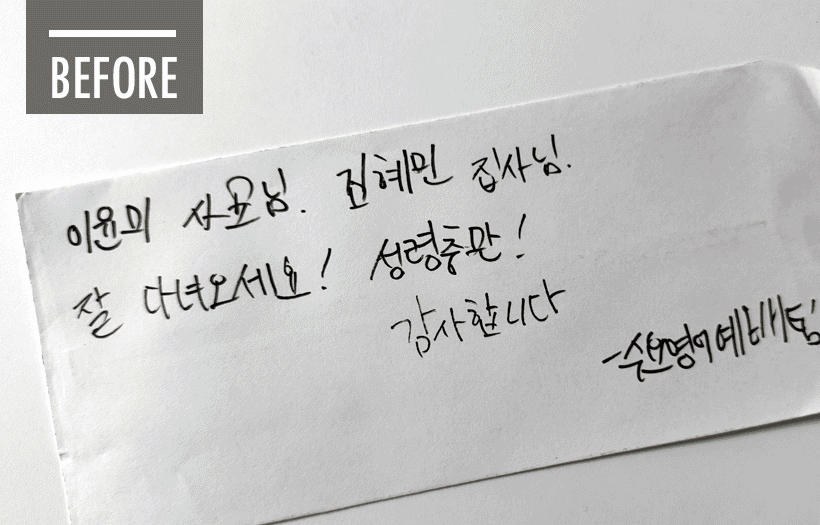 BEFORE
이윤미 사모님. 전혜민 집사님.
잘 다녀오세요! 성령충만!
감사합니다
- 수요영어예배팀